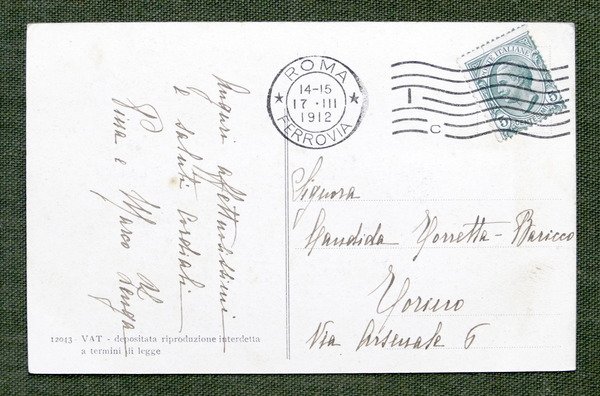 Auguri affettuosissimi
e saluti cordiali
Pina e Marco
12043 - VAT - depositata riproduzione interdetta
a termini di legge
ROMA
14-15
17 · III
1912
FERROVIA
1
C
POSTE ITALIANE
5
5
Signora
Candida Torretta - Baricco
Torino
Via Arsenale 6